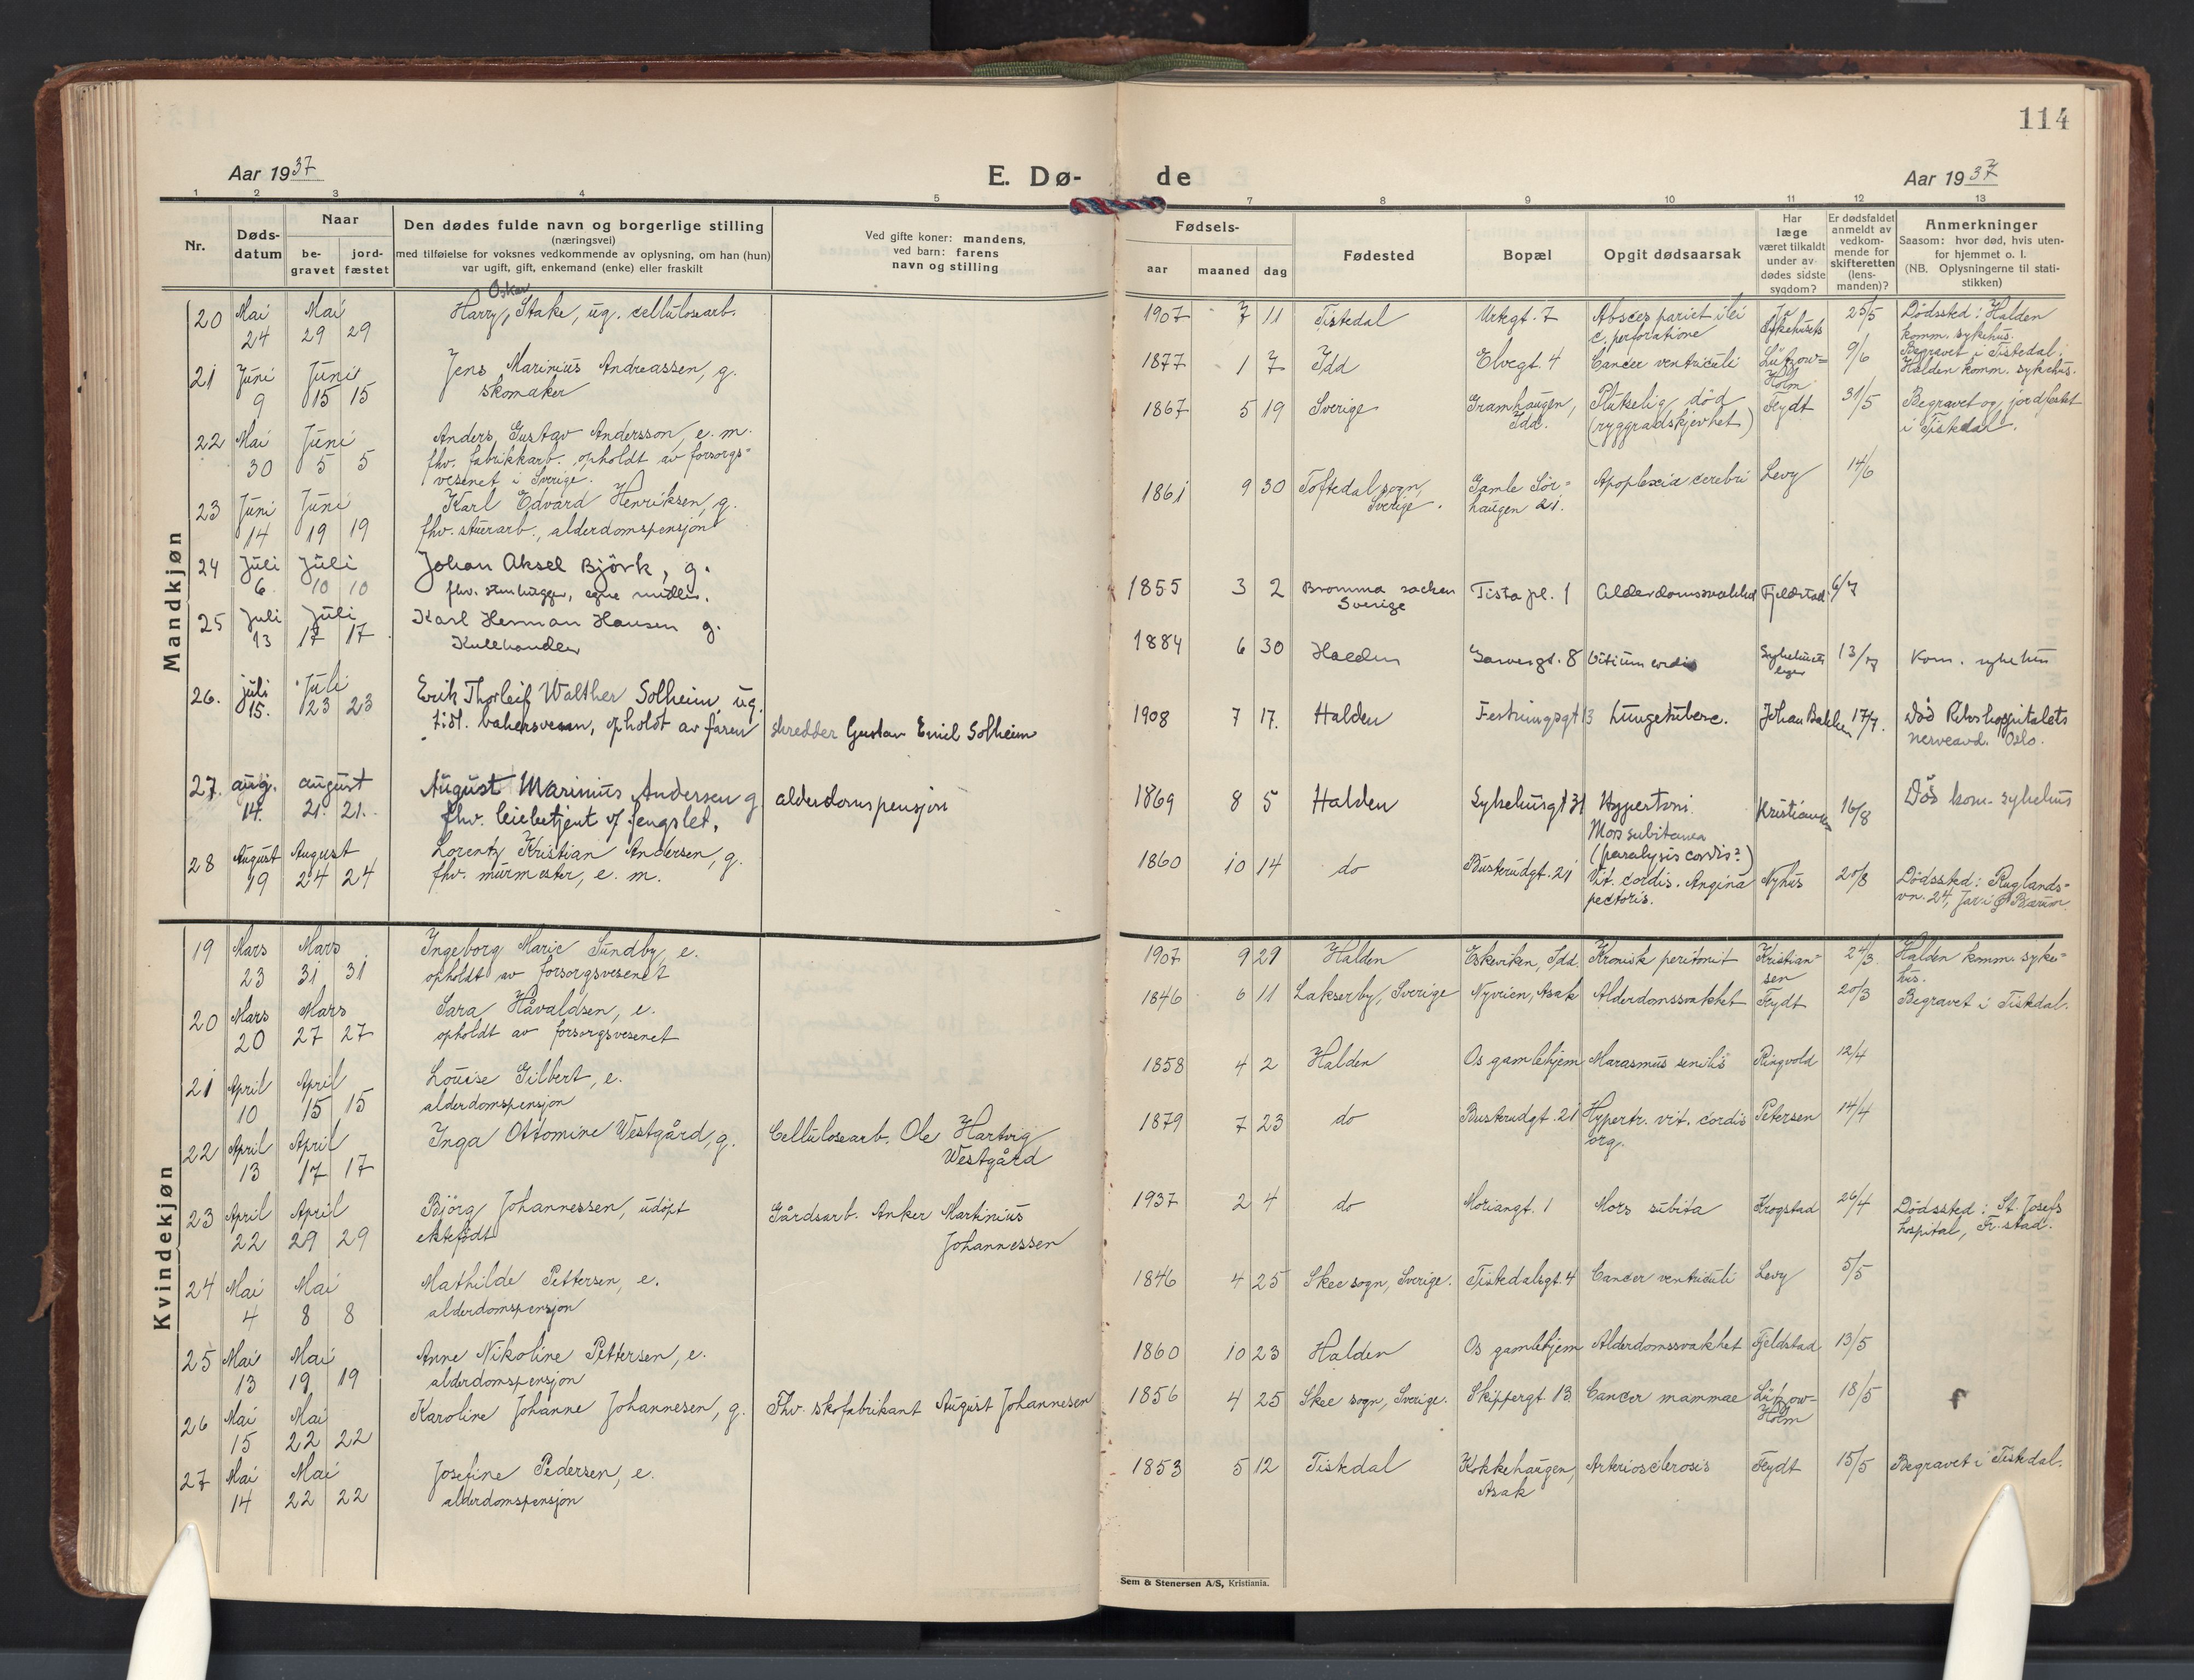 114
Aar 1937
E. Dø-
de
Aar 1937
1 2 3 4 5
7 8 9 10 11 12 13
Nr.
Døds-
datum
Naar
be-
gravet
jord-
fæstet
Den dødes fulde navn og borgerlige stilling
(næringsvei)
med tilføielse for voksnes vedkommende av oplysning, om han (hun)
var ugift, gift, enkemand (enke) eller fraskilt
Ved gifte koner: mandens,
ved barn: farens
navn og stilling
Fødsels-
aar
maaned
dag
Fødested
Bopæl
Opgit dødsaarsak
Har
læge
været tilkaldt
under av-
dødes sidste
sygdom?
Er dødsfaldet
anmeldt av
vedkom-
mende for
skifteretten
(lens-
manden)?
Anmerkninger
Saasom: hvor død, hvis uten-
for hjemmet o. l.
(NB. Oplysningerne til stati-
stikken)
Mandkjøn
Oskar
20 Mai Mai Harry, Stake, ug. cellulosearb. 1907 7 11 Tistedal Urtegt. 7 Absces pariet ilei Ja 25/5 Dødssted: Halden
24 29 29 c. perforatione sykehusets komm. sykehus.
Begravet i Tistedal.
21 Juni Juni Jens Marinius Andreassen, g. 1877 1 7 Idd Elvegt. 4 Cancer ventriculi Lützow- 9/6 Halden komm. sykehus.
9 15 15 skomaker Holm
22 Mai Juni Anders Gustav Andersson, e. m. 1867 5 19 Sverige Gramhaugen, Plutselig død Feydt 31/5 Begravet og jordfestet
30 5 5 fhv. fabrikkarb. opholdt av forsorgs- Idd. (ryggradskjevhet) i Tistedal.
vesenet i Sverige.
23 Juni Juni Karl Edvard Henriksen, g. 1861 9 30 Toftedal sogn, Gamle Sør- Apoplexia cerebri Levy 14/6
14 19 19 fhv. stuerarb., alderdomspensjon Sverige. haugen 21.
24 Juli Juli Johan Aksel Björk, g. 1855 3 2 Bromma socken Tista pl. 1 Alderdomssvakhet Fjeldstad 6/7
6 10 10 fhv. stenhugger, egne midler. Sverige
25 Juli Juli Karl Herman Hansen g. 1884 6 30 Halden 8 Vitium cordis Sykehusets 13/7 Kom. sykehus
13 17 17 Kullhandler leger
26. juli Juli Erik Thorleif Walther Solheim, ug. 1908 7 17. Halden Festningsgt 13 Lungetuberc. Johan Bakken 17/7. Død Rikshospitalets
15. 23 23 opholdt av faren skredder Gustav Emil Solheim nerveavd. Oslo.
27. aug. august August Marinius Andersen g alderdomspensjon 1869 8 5 Halden Sykehusgt 31 Hypertoni Kristiansen 16/8 Død kom. sykehus
14. 21. 21. fhv. leiebetjent v/ fengslet. Mors subitanea
28 August August Lorentz Kristian Andersen, g. 1860 10 14 do Busterudgt. 21 (paralysis cordis?) Nyhus 20/8 Dødssted: Ruglands-
19 24 24 fhv. murmester, e. m. Vit. cordis. Angina vn. 24, Jar i Ø Bærum.
pectoris.
Kvindekjøn
19 Mars Mars Ingeborg Marie Sundby, e. 1907 9 29 Halden Eskeviken, Idd. Kronisk peritonit Kristian- 24/3 Halden komm. syke-
23 31 31 opholdt av forsorgsvesenet sen hus.
20 Mars Mars Sara Håvaldsen, e. 1846 6 11 Lakserby, Sverige Nyveien, Asak Alderdomssvakhet Feydt 20/3 Begravet i Tistedal.
20 27 27 opholdt av forsorgsvesenet
21 April April Louise Gilbert, e. 1858 4 2 Halden Os gamlehjem Marasmus senilis Ringvold 12/4
10 15 15 alderdomspensjon
22 April April Inga Ottomine Westgård, g. Cellulosearb. Ole Hartvig 1879 7 23 do Busterudgt. 21 Hypertr. vit. cordis Petersen 14/4
13 17 17 Westgård org.
23 April April Bjørg Johannessen, udøpt Gårdsarb. Anker Martinius 1937 2 4 do Moriangt. 1 Mors subita Krogstad 26/4 Dødssted: St. Josefs
22 29 29 ektefødt Johannessen hospital, Fr.stad.
24 Mai Mai Mathilde Pettersen, e. 1846 4 25 Skee sogn, Sverige. Tistedalsgt. 4 Cancer ventriculi Levy 5/5
4 8 8 alderdomspensjon
25 Mai Mai Anne Nikoline Pettersen, e. 1860 10 23 Halden Os gamlehjem Alderdomssvakhet Fjeldstad 13/5
13 19 19 alderdomspensjon
26 Mai Mai Karoline Johanne Johannesen, g. Fhv. skofabrikant August Johannesen 1856 4 25 Skee sogn, Sverige. Skippergt. 13 Cancer mammae Lützow- 18/5
15 22 22 Holm
27 Mai Mai Josefine Pedersen, e. 1853 5 12 Tistedal Kokkehaugen, Arteriosclerosis Feydt 15/5 Begravet i Tistedal.
14 22 22 alderdomspensjon Asak
Sem & Stenersen A/S, Kristiania.